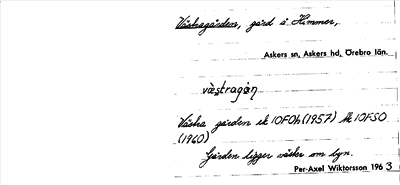 Västragården, gård å Himmer,
Askers sn, Askers hd, Örebro län.
Västra gården ek 10F0h (1957) Æ 10F SO
(1960)
Gården ligger väster om byn.
Per-Axel Wiktorsson 1963